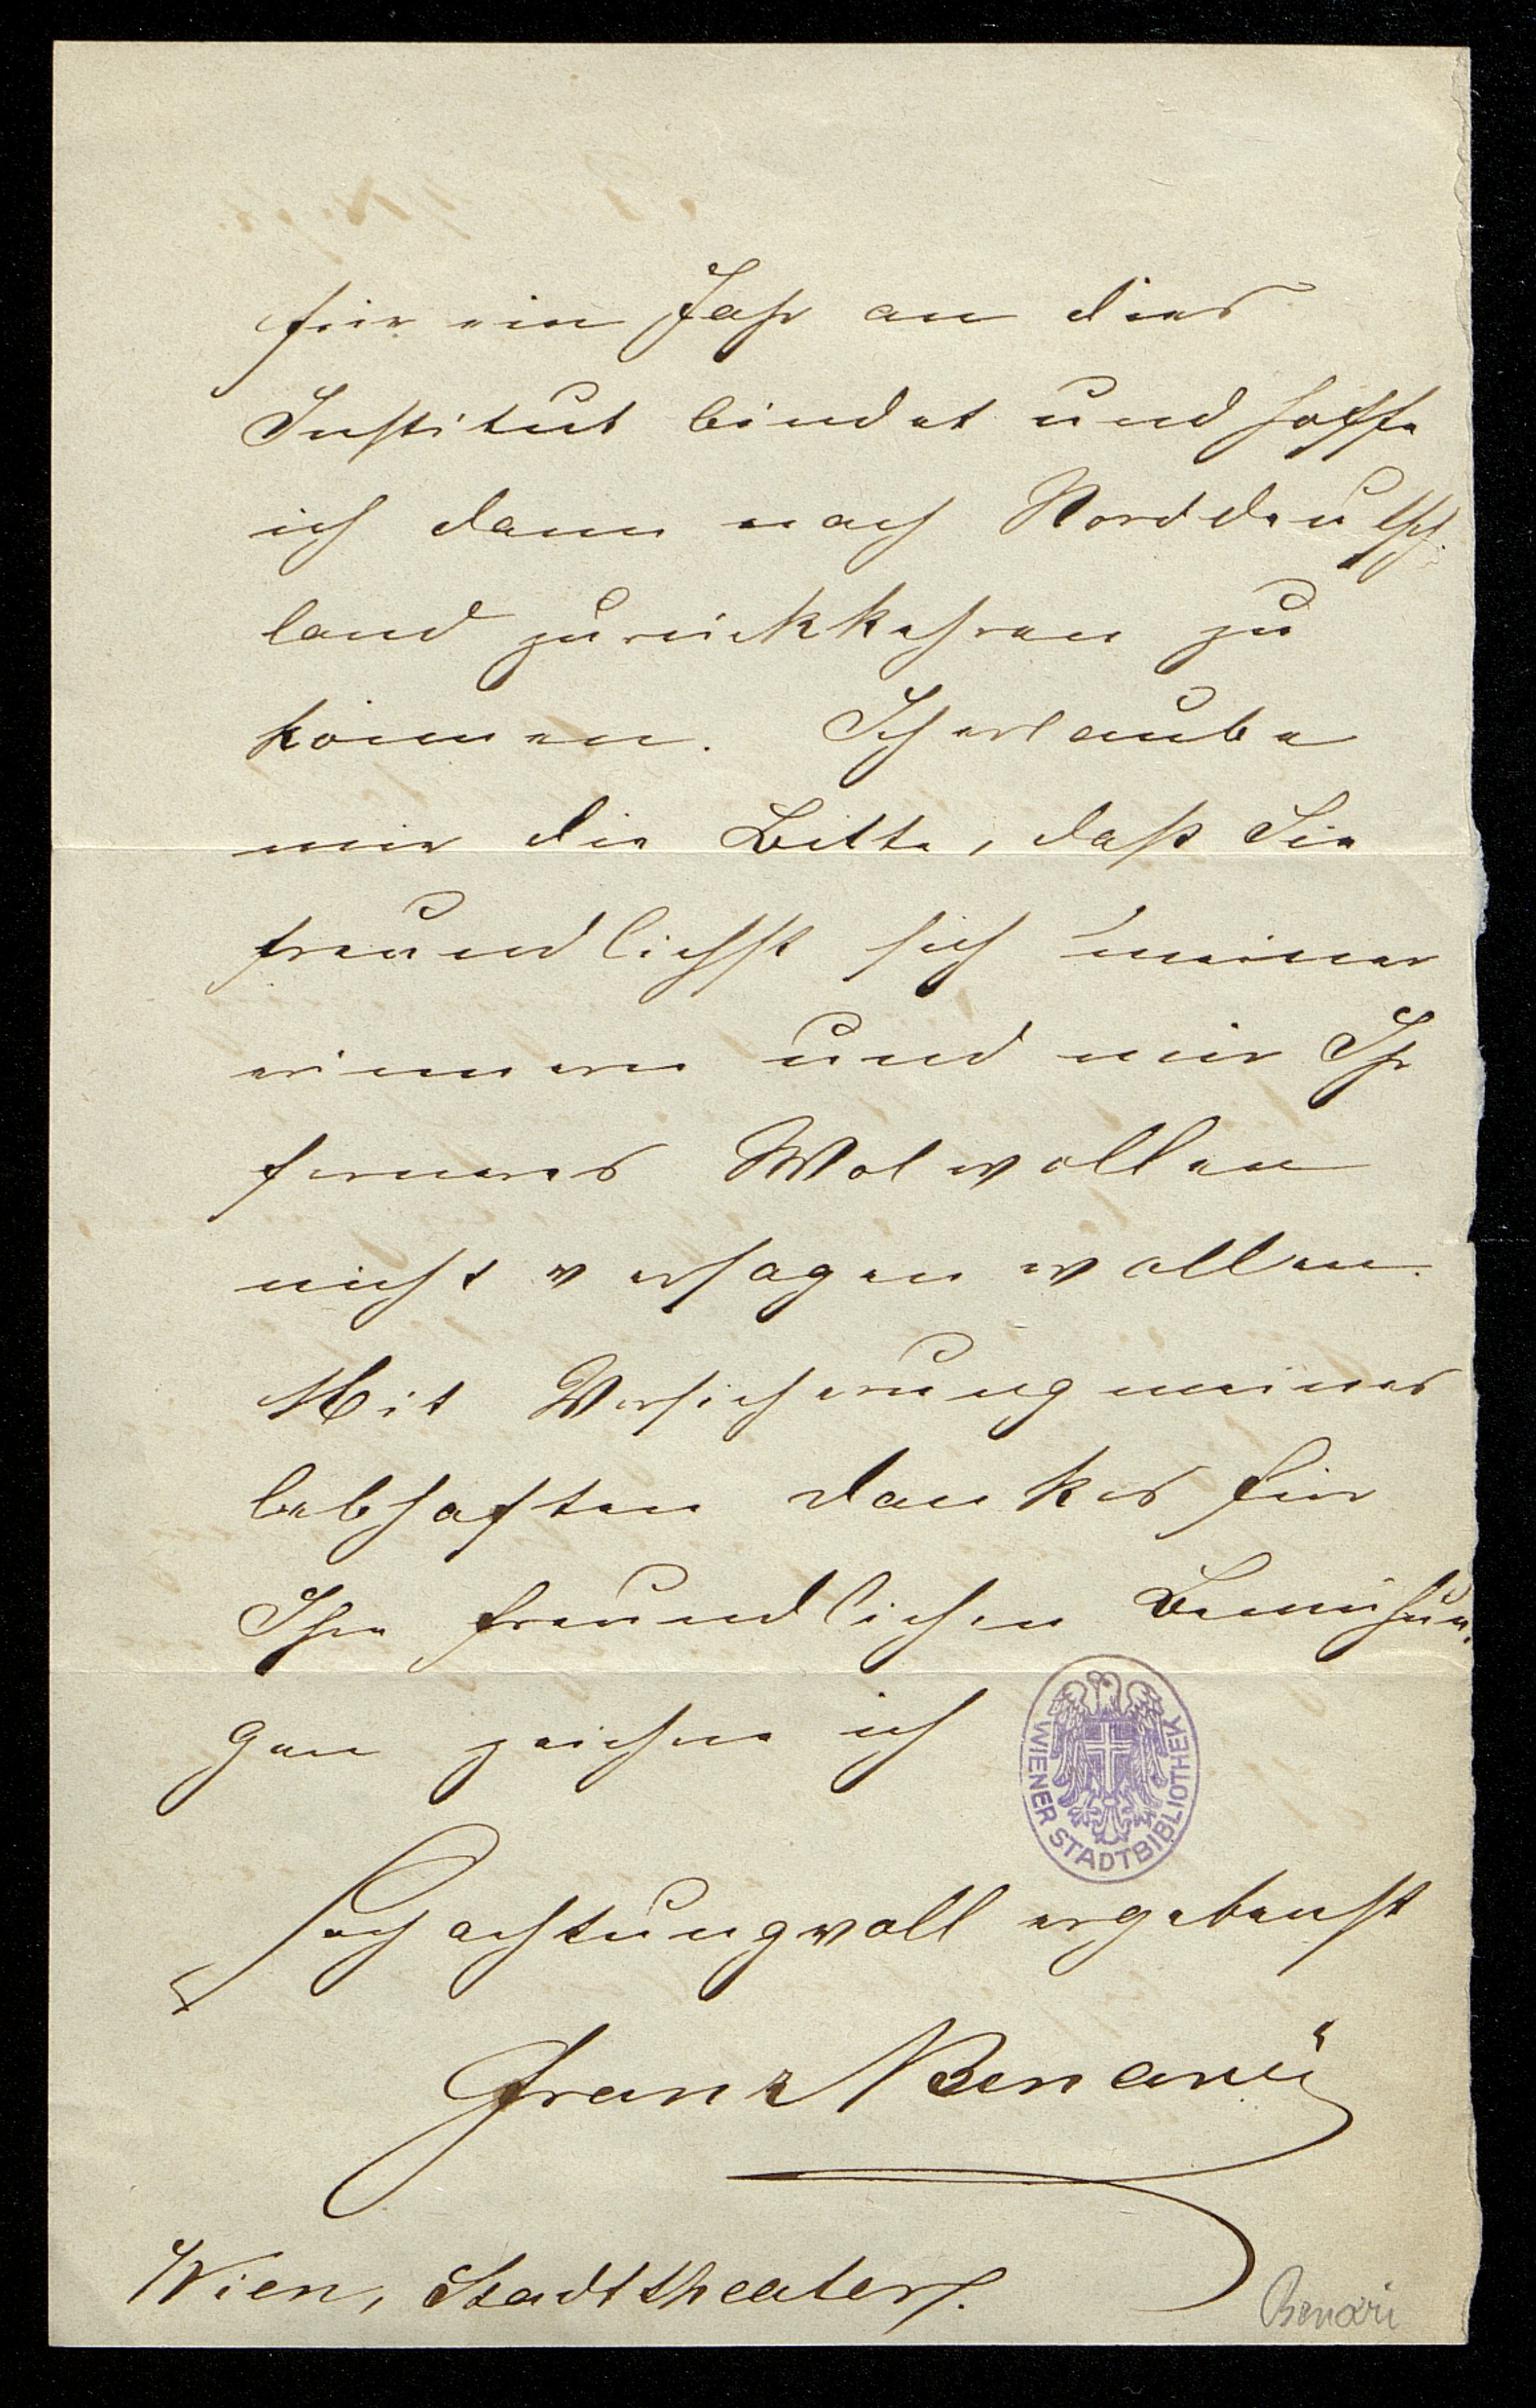 für ein Jahr an dies
Institut bindet und hoffe
ich dann nach Norddeutsch-
land zurückkehren zu
können. Ich erlaube
mir die Bitte, daß Sie
freundlichst sich meiner
erinnern und mir Ihr
ferneres Wolwollen
nicht versagen wollen.
Mit Versicherung meines
lebhaften Dankes für
Ihre freundlichen Bemühun-
gen zeichne ich
WIENER STADTBIBLIOTHEK
Hochachtungvoll ergebenst
Franz Benari
Wien, Stadttheater.
Benari